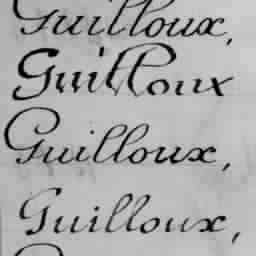 Guilloux,
Guilloux
Guilloux,
Guilloux,